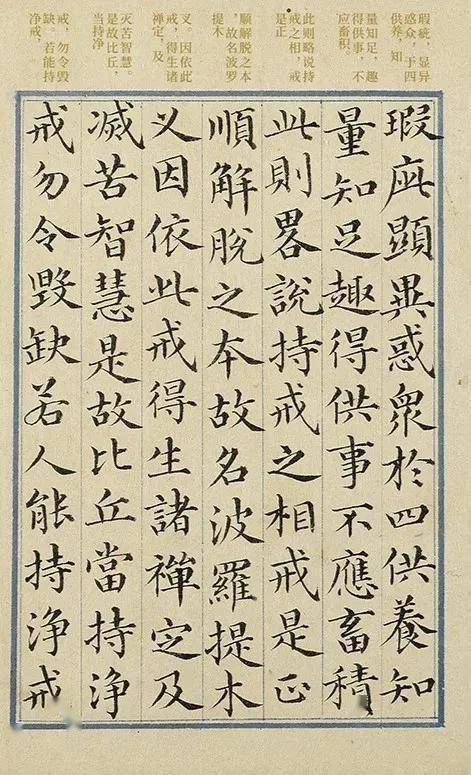 瑕疵，显异
惑众，于四
供养，知
量知足，趣
得供事，不
应畜积。
此则略说持
戒之相，戒
是正
顺解脱之本
，故名波罗
提木
叉。因依此
戒，得生诸
禅定，及
灭苦智慧。
是故比丘，
当持净
戒，勿令毁
缺。若能持
净戒，
瑕疵顯異惑衆於四供養知
量知足趣得供事不應畜積
此則畧説持戒之相戒是正
順解脫之本故名波羅提木
叉因依此戒得生諸禪定及
滅苦智慧是故比丘當持净
戒勿令毀缺若人能持净戒